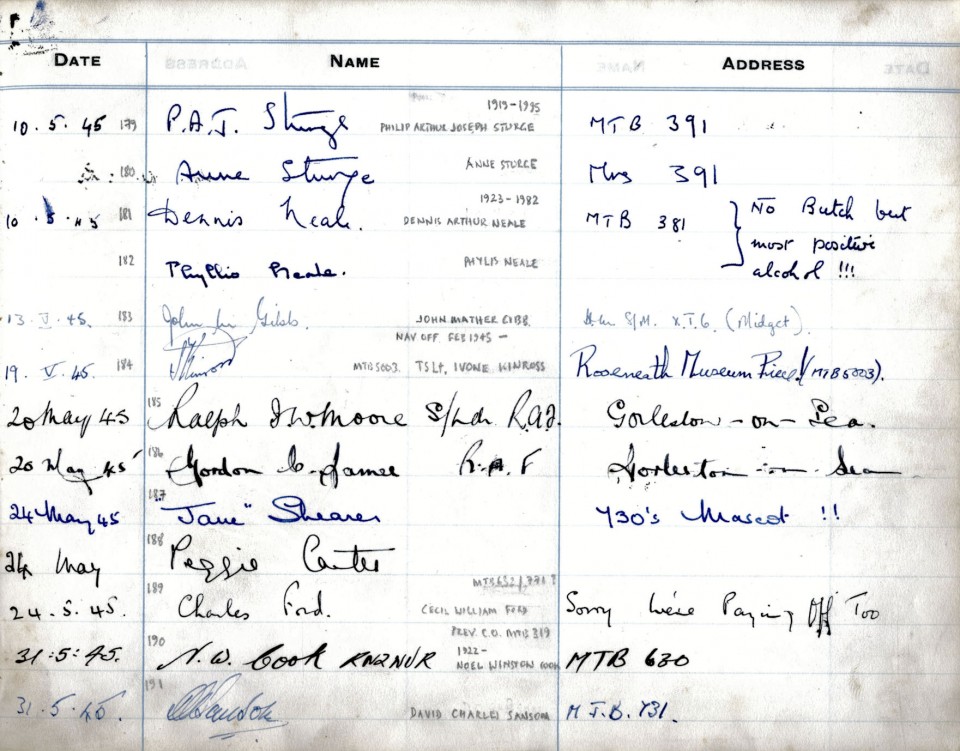 DATE NAME ADDRESS
1919-1995
10.5.45 179 P.A.J. Sturge PHILIP ARTHUR JOSEPH STURGE MTB 391
180 Anne Sturge ANNE STURGE Mrs 391
1923-1982
10.5.45 181 Dennis Neale. DENNIS ARTHUR NEALE MTB 381 } No Butch but
most positive
182 Phyllis Neale. PHYLIS NEALE alcohol !!!
13.V.45. 183 John M Gibb. JOHN MATHER GIBB S/M. X.T.6. (Midget).
NAV OFF FEB 1945 -
19.V.45. 184 MTB5003. TSLt. IVONE KINROSS Roseneath Museum Piece! (MTB5003).
20 May 45 185 Ralph J.W. Moore S/Ldr R.A.F. Gorleston-on-Sea.
20 May 45 186 Gordon C. James R.A.F Gorleston-on-Sea
24 May 45 187 "Jane" Shearer 730's Mascot !!
24 May 188 Peggie Carter
MTB632/771?
24.5.45. 189 Charles Ford. CECIL WILLIAM FORD Sorry We're Paying Off Too
PREV. C.O. MTB 319
1922-
31:5:45. 190 N.W. Cook RNZNVR NOEL WINSTON COOK MTB 630
31.5.45. 191 DAVID CHARLES SANSOM M.T.B. 731.